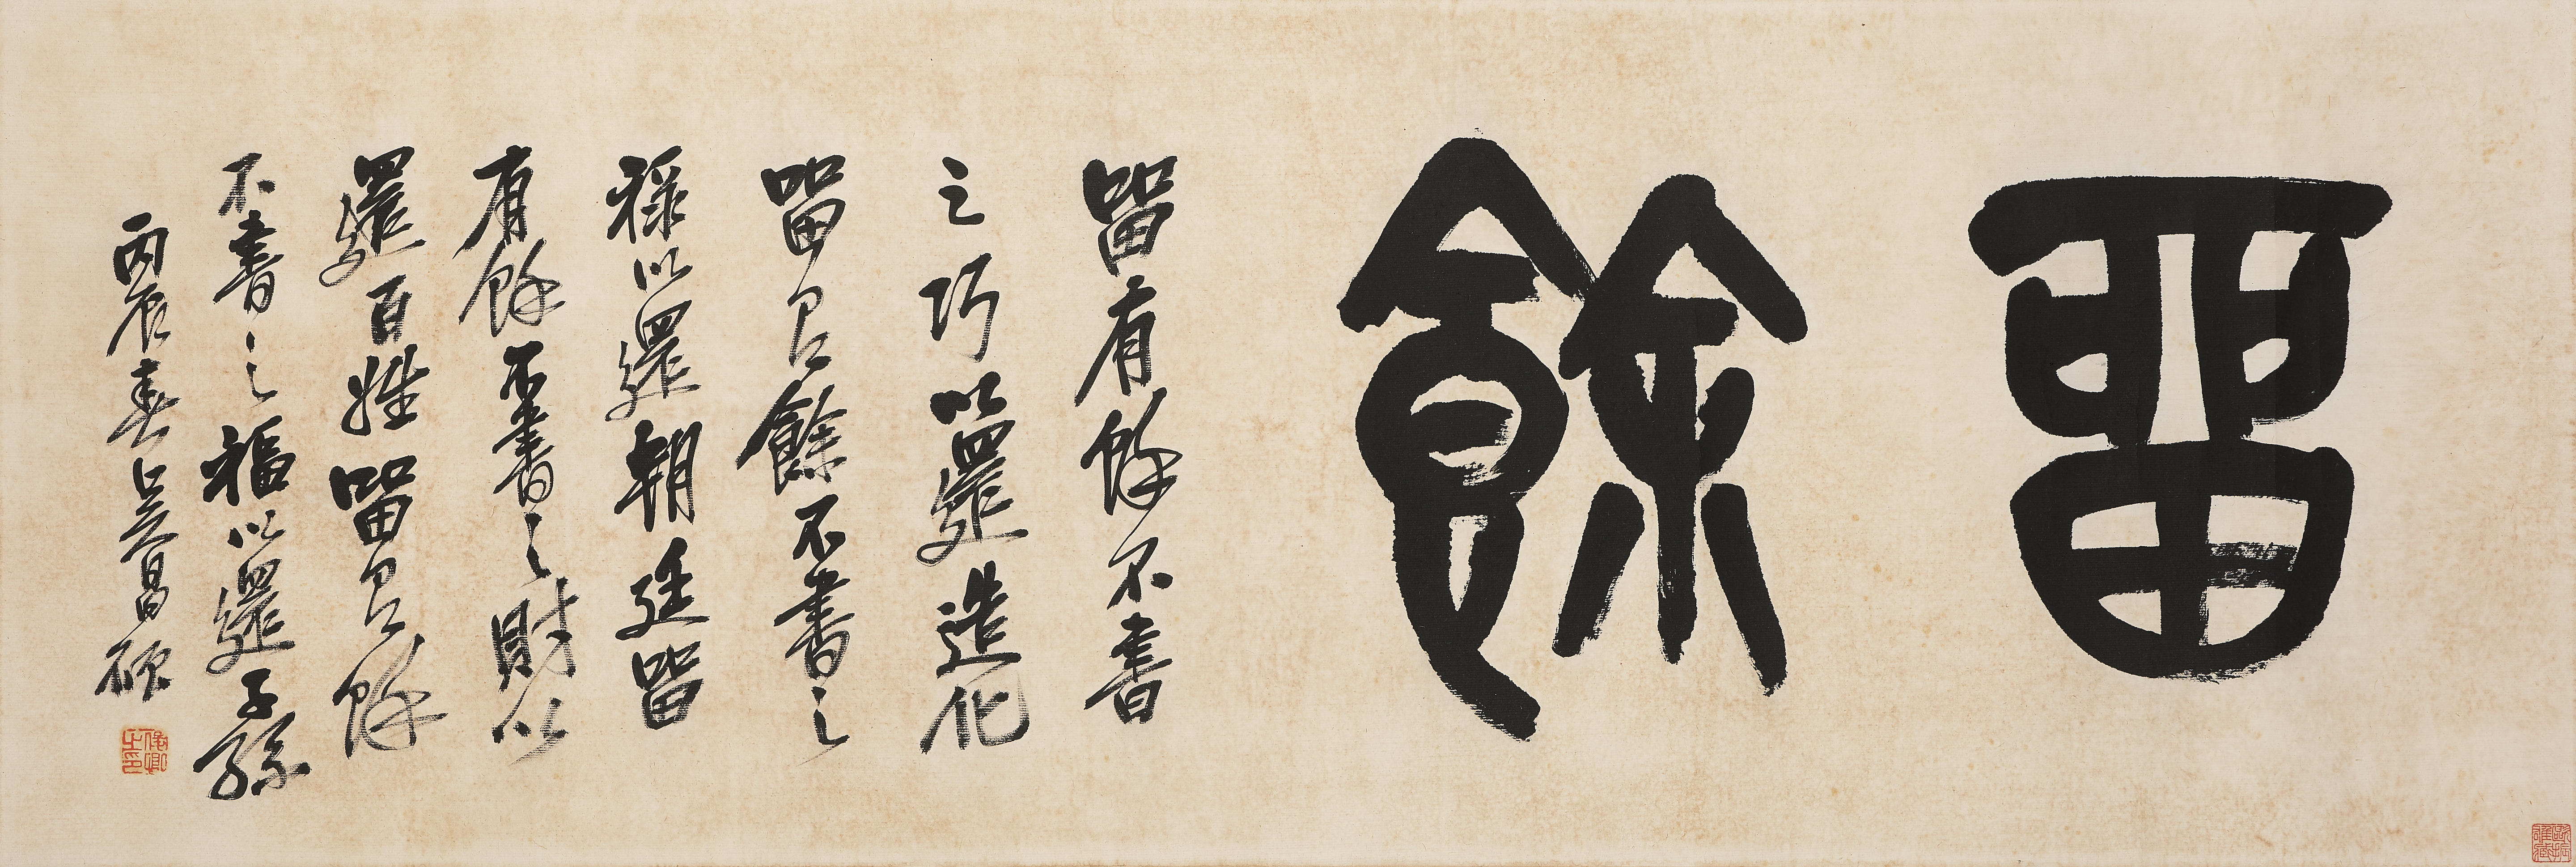 留餘
留有餘不盡
之巧以還造化
留有餘不盡之
祿以還朝廷留
有餘不盡之財以
還百姓留有餘
不盡之福以還子孫
丙辰春吳昌碩
俊卿之印